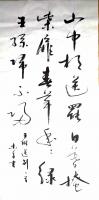 山中相送罷日暮掩
柴扉春草年々綠
王孫歸不歸
王維送別